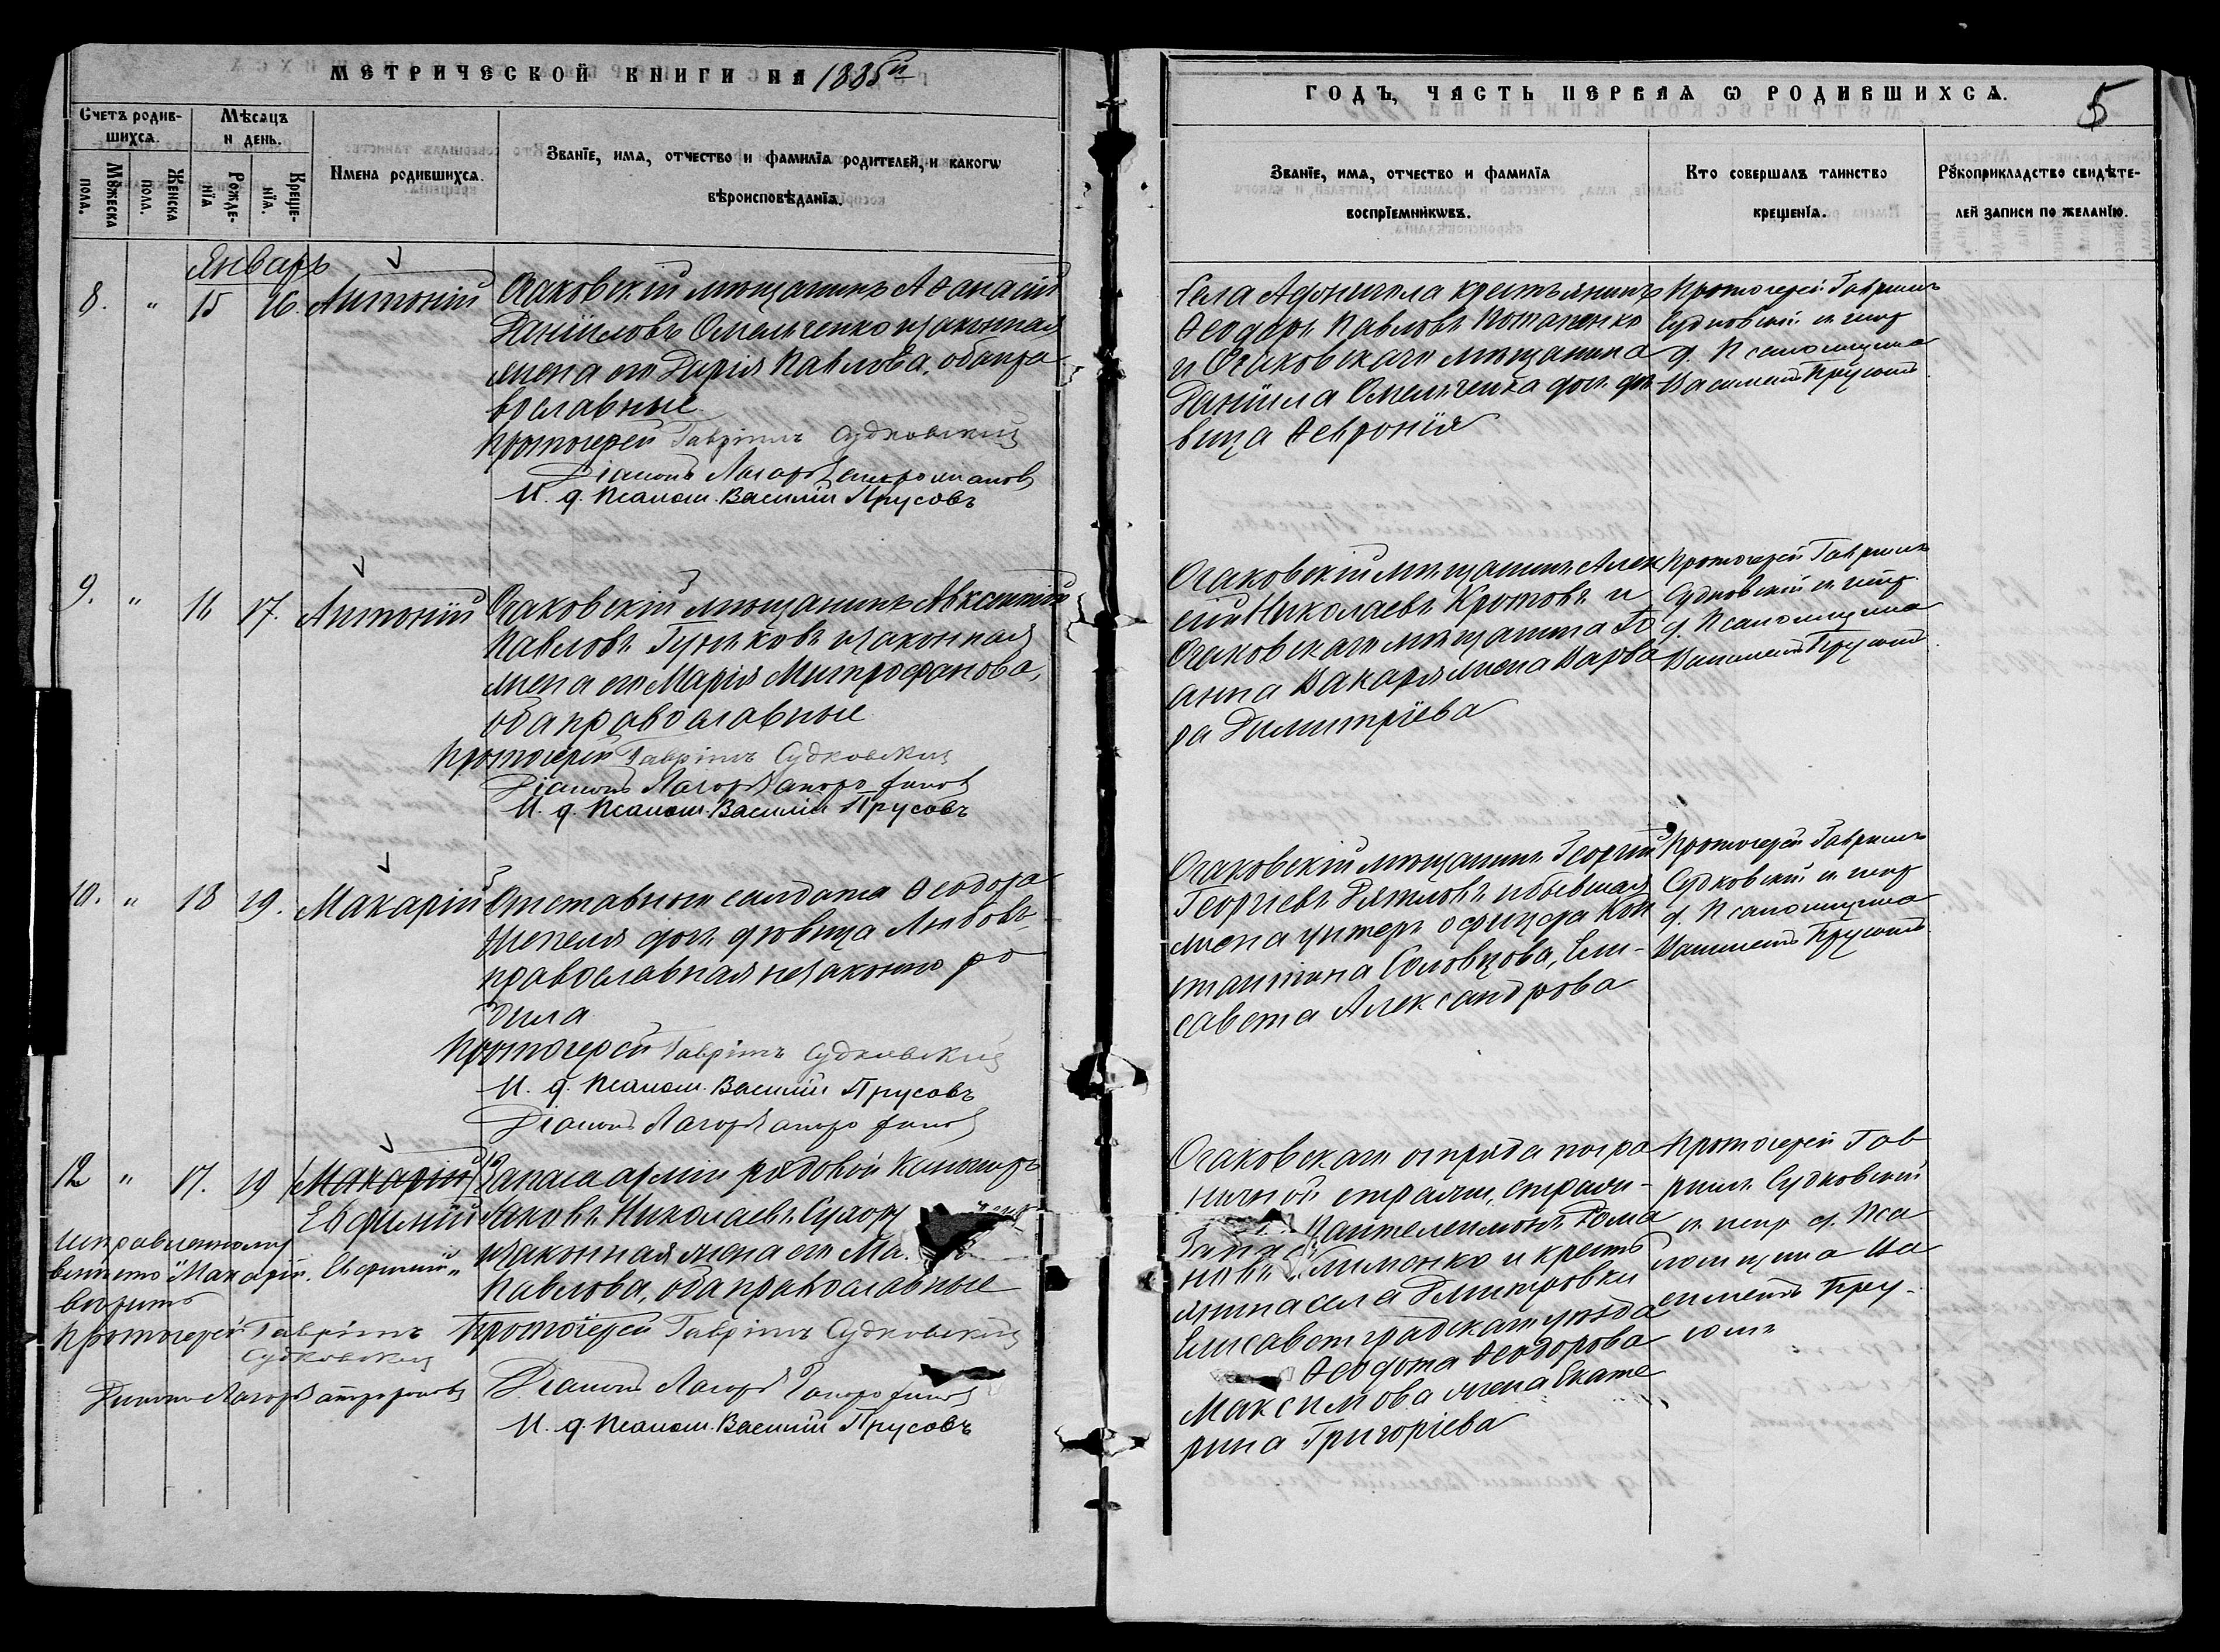 МЕТРИЧЕСКОЙ КНИГИ НА 1885й
Счетъ родив-
шихся.
Мѣсяцъ
и день.
Мꙋжеска
пола.
Женска
пола.
Рожде-
нїя
Креще-
нїя.
Имена родившихся.
Званїе, имя, отчество и фамилїя родителей, и какогѡ
вѣроисповѣданїя.
Январь
8. " 15 26. Антоній
Очаковскій мѣщанинъ Аѳанасій
Даніиловъ Омельченко и законная
жена его Дарія Павлова, оба пра-
вославные
Протоіерей Гавріилъ Судковскій
Діаконъ
И. д. псалом. Василій Прусовъ
9. " 16 17. Антоній
Очаковскій мѣщанинъ Авксентій
Павловъ и законная
жена его Марія Митрофанова,
оба православные
Протоіерей Гавріилъ Судковскій
Діаконъ
И. д. псалом. Василій Прусовъ
10. " 18 19. Макарій
Отставного солдата Ѳеодора
дочь дѣвица Любовь
православная незаконно ро
дила
Протоіерей Гавріилъ Судковскій
И. д. псалом. Василій Прусовъ
Діаконъ
12 " 17. 19 Макарій
Евфимій
Запаса арміи рядовой
Яковъ Николаевъ
и законная жена его Ма.
Павлова, оба православные
Исправленному
вмѣсто "Макарій. Евфимій"
вѣрить
Протоіерей Гавріилъ
Судковскій
Діаконъ
Протоіерей Гавріилъ Судковскій
Діаконъ
И. д. псалом. Василій Прусовъ
ГОДЪ, ЧАСТЬ ПЕРВАЯ Ѡ РОДИВШИХСЯ.
5
Званїе, имя, отчество и фамилїя
воспрїемникѡвъ.
Кто совершалъ таинство
крещенїя.
Рꙋкоприкладство свидѣте-
лей записи по желанїю.
Села крестьянинъ
Ѳеодоръ Павловъ Потапенко
и Очаковскаго мѣщанина
Даніила Омельченка дочь дѣ-
вица Ѳевронія
Протоіерей Гавріилъ
Судковскій съ испр
д. Псаломщика
Василіемъ Прусовымъ
Очаковскій мѣщанинъ Алек
сій Николаевъ Кротовъ и
Очаковскаго мѣщанина Іо
анна Вакаря жена Варва
ра Димитріева
Протоіерей Гавріилъ
Судковскій съ испр
д. Псаломщика
Василіемъ Прусовымъ
Очаковскій мѣщанинъ Георгій
Георгіевъ Дятловъ и бывшая
жена унтеръ офицера Кон
стантина Соловцова, Ели-
савета Александрова
Протоіерей Гавріилъ
Судковскій съ испр
д. Псаломщика
Василіемъ Прусовымъ
Очаковскаго отряда погра
ничной стражи, стражи-
Пантелеимонъ Рома
новъ и кресть
янина села Дмитровки
Елисаветградскаго уѣзда
Ѳеодота Ѳеодорова
Максимова жена Екате
рина Григоріева
Протоіерей Гав
ріилъ Судковскій
съ испр д. Пса
ломщика Ва
силіемъ Пру-